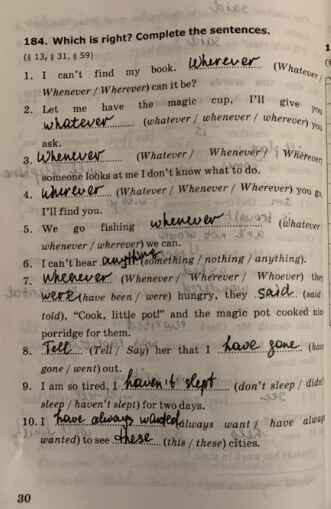 184. Which is right? Complete the sentences.
(§ 13, § 31, § 59)
1. I can't find my book. Wherever (Whatever /
Whenever / Wherever) can it be?
2. Let me have the magic cup, I'll give you
whatever (whatever / whenever / wherever) you
ask.
3. Whenever (Whatever / Whenever / Wherever)
someone looks at me I don't know what to do.
4. Wherever (Whatever / Whenever / Wherever) you go
I'll find you.
5. We go fishing whenever (whatever
whenever / wherever) we can.
6. I can't hear anything (something / nothing / anything).
7. Whenever (Whenever / Wherever / Whoever) they
were (have been / were) hungry, they said (said
told), "Cook, little pot!" and the magic pot cooked
porridge for them.
8. Tell (Tell / Say) her that I have gone (have
gone / went) out.
9. I am so tired, I haven't slept (don't sleep / didn't
sleep / haven't slept) for two days.
10. I have always wanted (always want / have always
wanted) to see these (this / these) cities.
30